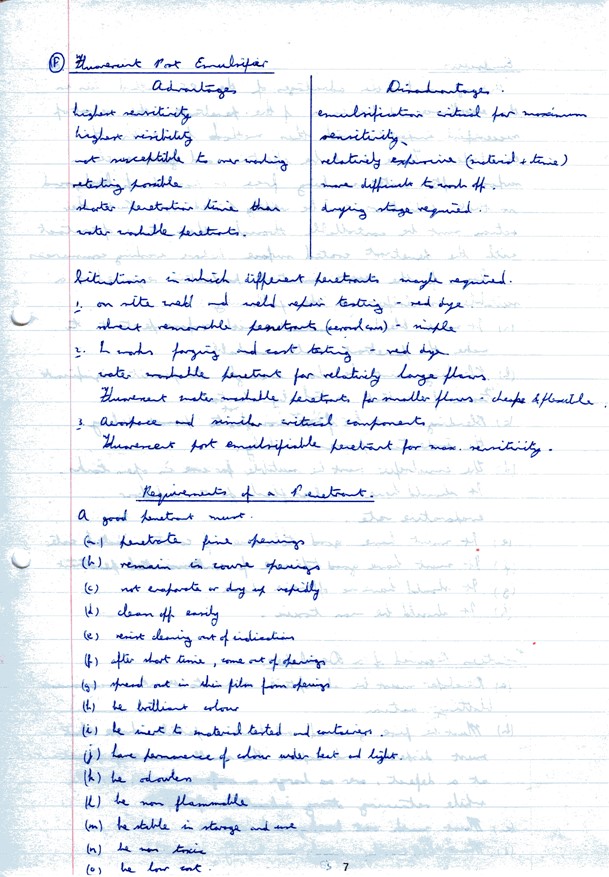 (F) Fluorescent Post Emulsifier
Advantages
highest sensitivity
highest visibility
not susceptible to over washing
retesting possible
shorter penetration time than
water washable penetrants.
Disadvantages.
emulsification critical for maximum
sensitivity.
relatively expensive (material + time)
more difficult to wash off.
drying stage required.
Situations in which different penetrants maybe required.
1. on site weld and weld repair testing - red dye
solvent removable penetrants (aerosol cans) - simple
2. In works forging and cast testing - red dye
water washable penetrant for relatively large flaws
Fluorescent water washable penetrants for smaller flaws - cheap & flexible.
3. Aerospace and similar critical components
Fluorescent post emulsifiable penetrant for max. sensitivity.
Requirements of a Penetrant.
A good penetrant must.
(a) penetrate fine openings
(b) remain in course openings
(c) not evaporate or dry up rapidly
(d) clean off easily
(e) resist cleaning out of indications
(f) after short time, come out of openings
(g) spread out in thin film from openings
(h) be brilliant colour
(i) be inert to material tested and containers.
(j) have permanence of colour under heat and light.
(k) be odourless
(l) be non flammable
(m) be stable in storage and use
(n) be non toxic
(o) be low cost.
7